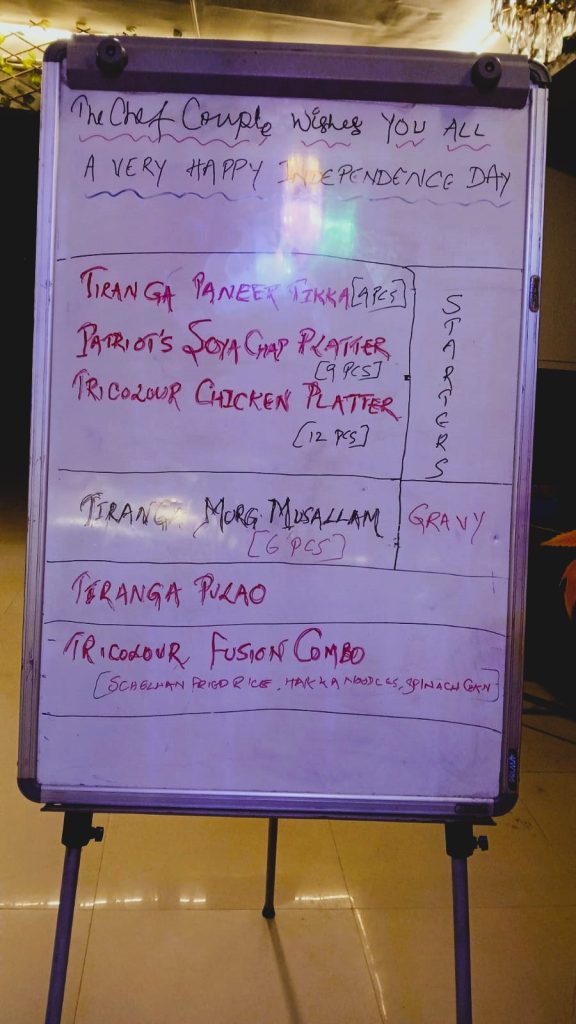 The Chef Couple Wishes YOU ALL
A VERY HAPPY INDEPENDENCE DAY
TIRANGA PANEER TIKKA [9 PCS]
PATRIOT'S SOYA CHAP PLATTER
[9 PCS]
TRICOLOUR CHICKEN PLATTER
[12 PCS]
STARTERS
TIRANGA MORG MUSALLAM
[6 PCS]
GRAVY
TIRANGA PULAO
TRICOLOUR FUSION COMBO
[SCHEZHAN FRIED RICE, HAKKA NOODLES, SPINACH CORN]